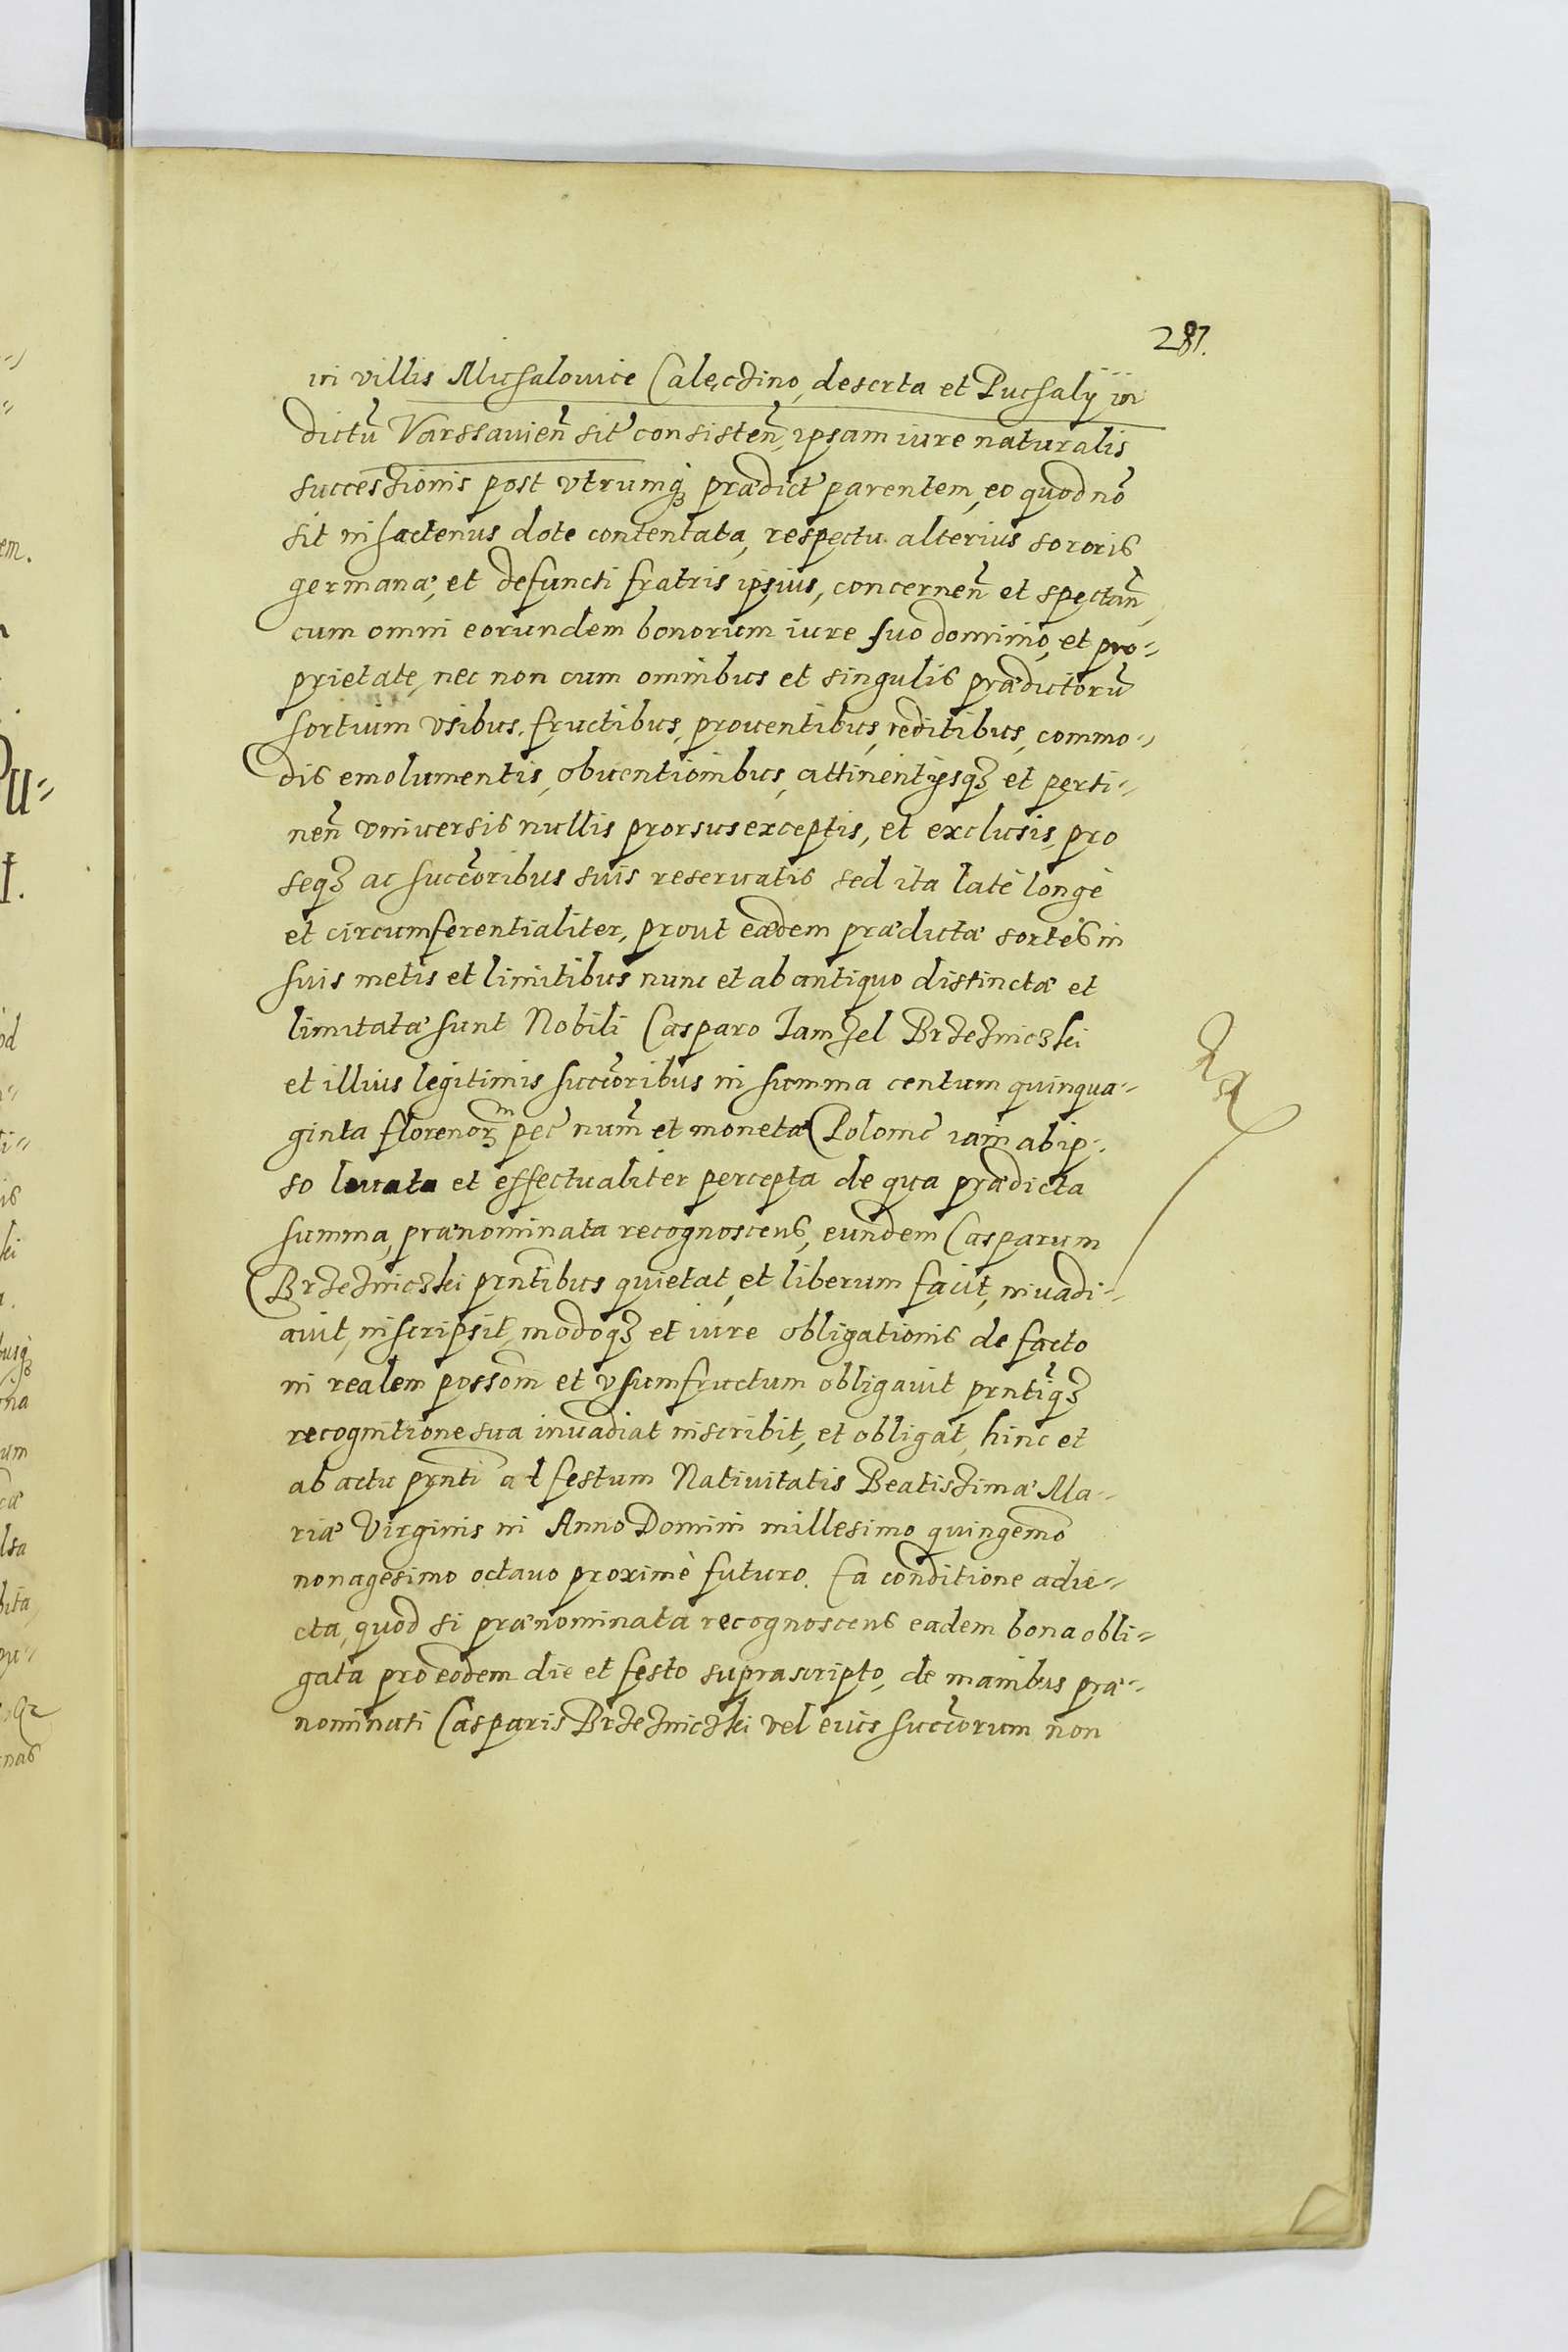 281.
in villis Michalouice Calęczino, deserta et Puchaly in
dictũ Varssauień sit consisteń, ipsam iure naturalis
successionis post vtrumq₃ prædict parentem, eo quod nõ
sit in hactenus dote contentata, respectu alterius sororis
germanæ, et defuncti fratris ipsius, concerneñ et spectañ,
cum omni eorundem bonorum iure suo dominio, et pro-
prietate, nec non cum omnibus et singulis prædictorũ
sortium vsibus, fructibus, prouentibus, reditibus, commo-
dis emolumentis, obuentionibus, attinentijsq₃ et perti-
neñ vniuersis nullis prorsus exceptis, et exclusis, pro
seq₃ ac succõribus suis reseruatis sed ita latè longè
et circumferentialiter, prout eædem prædictæ sortes in
suis metis et limitibus nunc et ab antiquo distinctæ et
limitatæ sunt Nobili Casparo Iamzel Brzezniczki
et illius legitimis succõribus in summa centum quinqua-
ginta florenoꝝ pec num̃ et monetæ Polonic iam ab ip-
so leuata et effectualiter percepta de qua prædicta
summa, prænominata recognoscens, eundem Casparum
Brzezniczki prñtibus quietat, et liberum facit, inuadi-
auit, inscripsit, modoq₃ et iure obligationis de facto
in realem possom̃ et vsumfructum obligauit prñtiq₃
recognitione sua inuadiat inscribit, et obligat, hinc et
ab actu prñti at festum Natiuitatis Beatissimæ Ma-
riæ Virginis in Anno Domini millesimo quingem̃o
nonagesimo octauo proximè futuro. Ea conditione adie-
cta, quod si prænominata recognoscens eadem bona obli-
gata pro eodem die et festo suprascripto, de manibus præ-
nominati Casparis Brzezniczki vel eius succõrum non